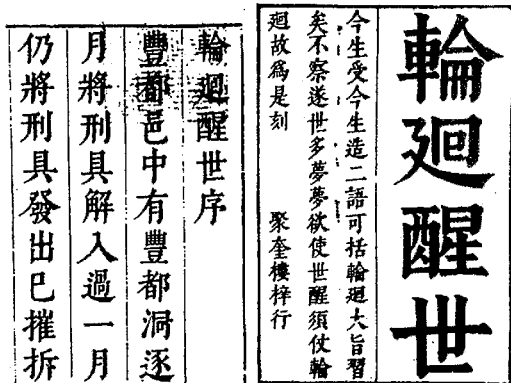 輪廻醒世
今生受今生造二語可括輪廻大旨習
矣不察遂世多夢夢欲使世醒須仗輪
廻故爲是刻　聚奎樓梓行
輪廻醒世序
酆都邑中有酆都洞逐
月將刑具解入過一月
仍將刑具發出已摧拆